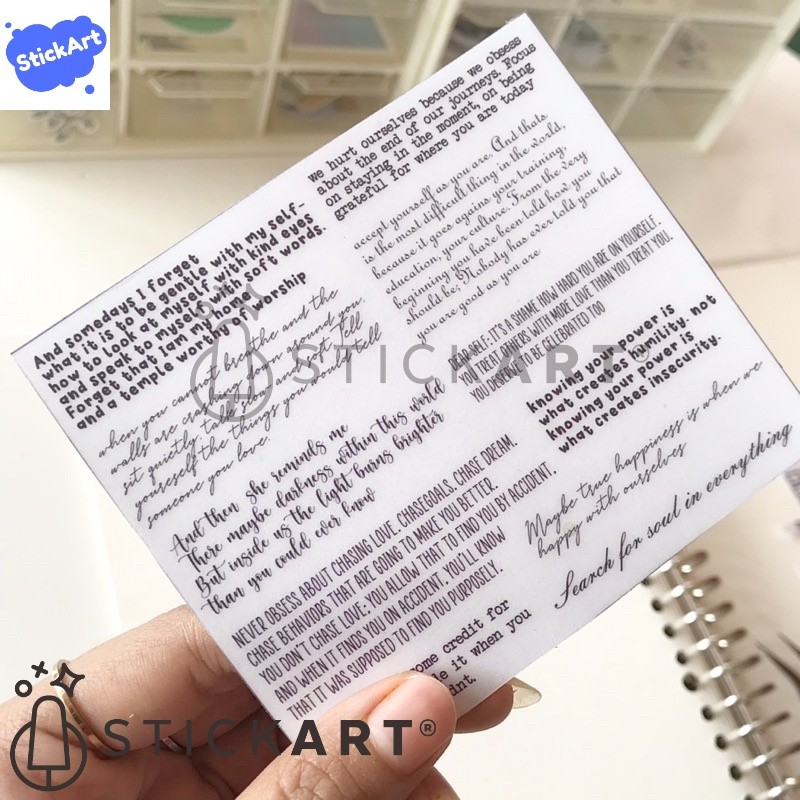 StickArt
we hurt ourselves because we obsess
about the end of our journeys. Focus
on staying in the moment, on being
grateful for where you are today
accept yourself as you are. And thats
is the most difficult thing in the world,
because it goes agains your training,
education, your culture. From the very
beginning you have been told how you
should be; Nobody has ever told you that
you are good as you are
And somedays I forget
what it is to be gentle with my self-
how to look at myself with kind eyes
and speak to myself with soft words.
Forget that iam my home
and a temple worthy of worship
when you cannot breathe and the
walls are crashing down around you.
sit quietly. talk slow and soft Tell
yourself the things you would tell
someone you love.
IT'S A SHAME HOW HARD YOU ARE ON YOURSELF.
YOU TREAT OTHERS WITH MORE LOVE THAN YOU TREAT YOU.
YOU DESERVE TO BE CELEBRATED TOO
STICKART
knowing your power is
what creates humility. not
knowing your power is.
what creates insecurity.
And then she reminds me
There maybe darkness within this world
But inside us the light burns brighter
than you could ever know
NEVER OBSESS ABOUT CHASING LOVE. CHASEGOALS. CHASE DREAM.
CHASE BEHAVIORS THAT ARE GOING TO MAKE YOU BETTER.
YOU DON'T CHASE LOVE; YOU ALLOW THAT TO FIND YOU BY ACCIDENT.
AND WHEN IT FINDS YOU ON ACCIDENT. YOU'LL KNOW
THAT IT WAS SUPPOSED TO FIND YOU PURPOSELY.
Maybe true happiness is when we
happy with ourselves
Search for soul in everything
credit for
it when you
STICKART®